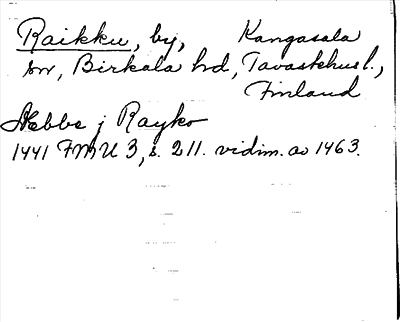 Raikku, by, Kangasala
sn, Birkala hd, Tavastehus l.,
Finland
Stebbe j Rayko
1441 FMU 3, s. 211. vidim. av 1463.